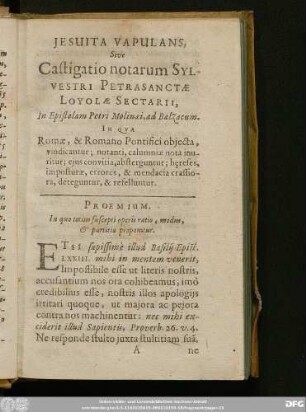 JESUITA VAPULANS,
Sive
Castigatio notarum SYL-
VESTRI PETRASANCTÆ
LOYOLÆ SECTARII,
In Epistolam Petri Molinæi ad Balzacum.
IN QVA
Romæ, & Romano Pontifici objecta,
vindicantur; notanti, calumniæ nota inu-
ritur; ejus convitia, absterguntur; hæreses,
imposturæ, errores, & mendacia crassio-
ra, deteguntur, & refelluntur.
PROEMIUM.
In quo totius suscepti operis ratio, modus,
& partitio proponitur.
ETSI sæpissimè illud Basilij Epist.
LXXIII. mihi in mentem venerit,
Impossibile esse ut literis nostris,
accusantium nos ora cohibeamus, imò
credibilius esse, nostris illos apologijs
irritari quoque, ut majora ac pejora
contra nos machinentur: nec mihi ex-
ciderit illud Sapientis, Proverb. 26. v. 4.
Ne responde stulto juxta stultitiam suã,
A ne